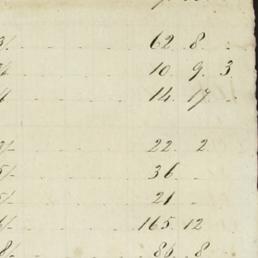 3/- 62. 8. .
3/- 10. 9. 3
4 14. 17.
3/- 22. 2
5/- 36
5/- 21
6/- 165. 12
8/- 85. 8